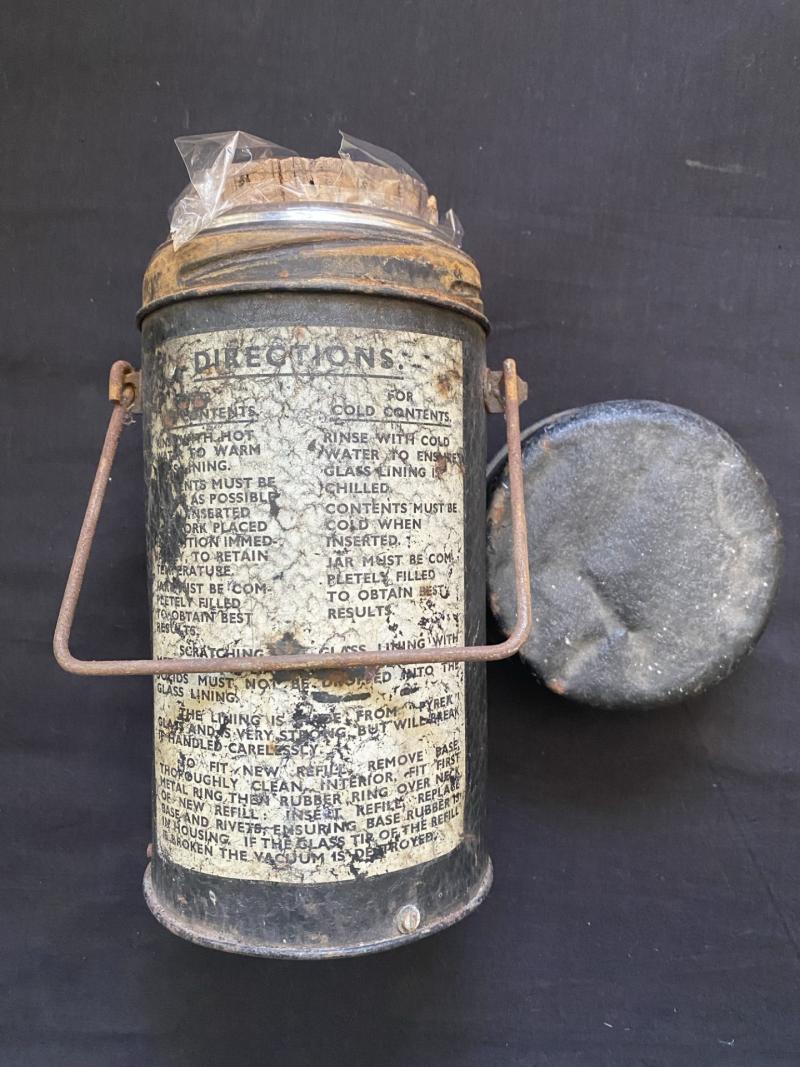 DIRECTIONS.
FOR
CONTENTS.
WITH HOT
TO WARM
LINING.
MUST BE
AS POSSIBLE
INSERTED
PLACED
IMMED-
TO RETAIN
TEMPERATURE.
JAR MUST BE COM-
PLETELY FILLED
TO OBTAIN BEST
RESULTS.
FOR
COLD CONTENTS.
RINSE WITH COLD
WATER TO ENSURE
GLASS LINING IS
CHILLED.
CONTENTS MUST BE
COLD WHEN
INSERTED.
JAR MUST BE COM-
PLETELY FILLED
TO OBTAIN BEST
RESULTS.
SCRATCHING GLASS LINING WITH
MUST NOT BE DROPPED INTO THE
GLASS LINING.
THE LINING IS MADE FROM "PYREX"
GLASS AND IS VERY STRONG, BUT WILL BREAK
IF HANDLED CARELESSLY.
TO FIT NEW REFILL, REMOVE BASE,
THOROUGHLY CLEAN INTERIOR, FIT FIRST
METAL RING THEN RUBBER RING OVER NECK
OF NEW REFILL. INSERT REFILL, REPLACE
BASE AND RIVETS, ENSURING BASE RUBBER IS
IN HOUSING. IF THE GLASS TIP OF THE REFILL
IS BROKEN THE VACUUM IS DESTROYED.